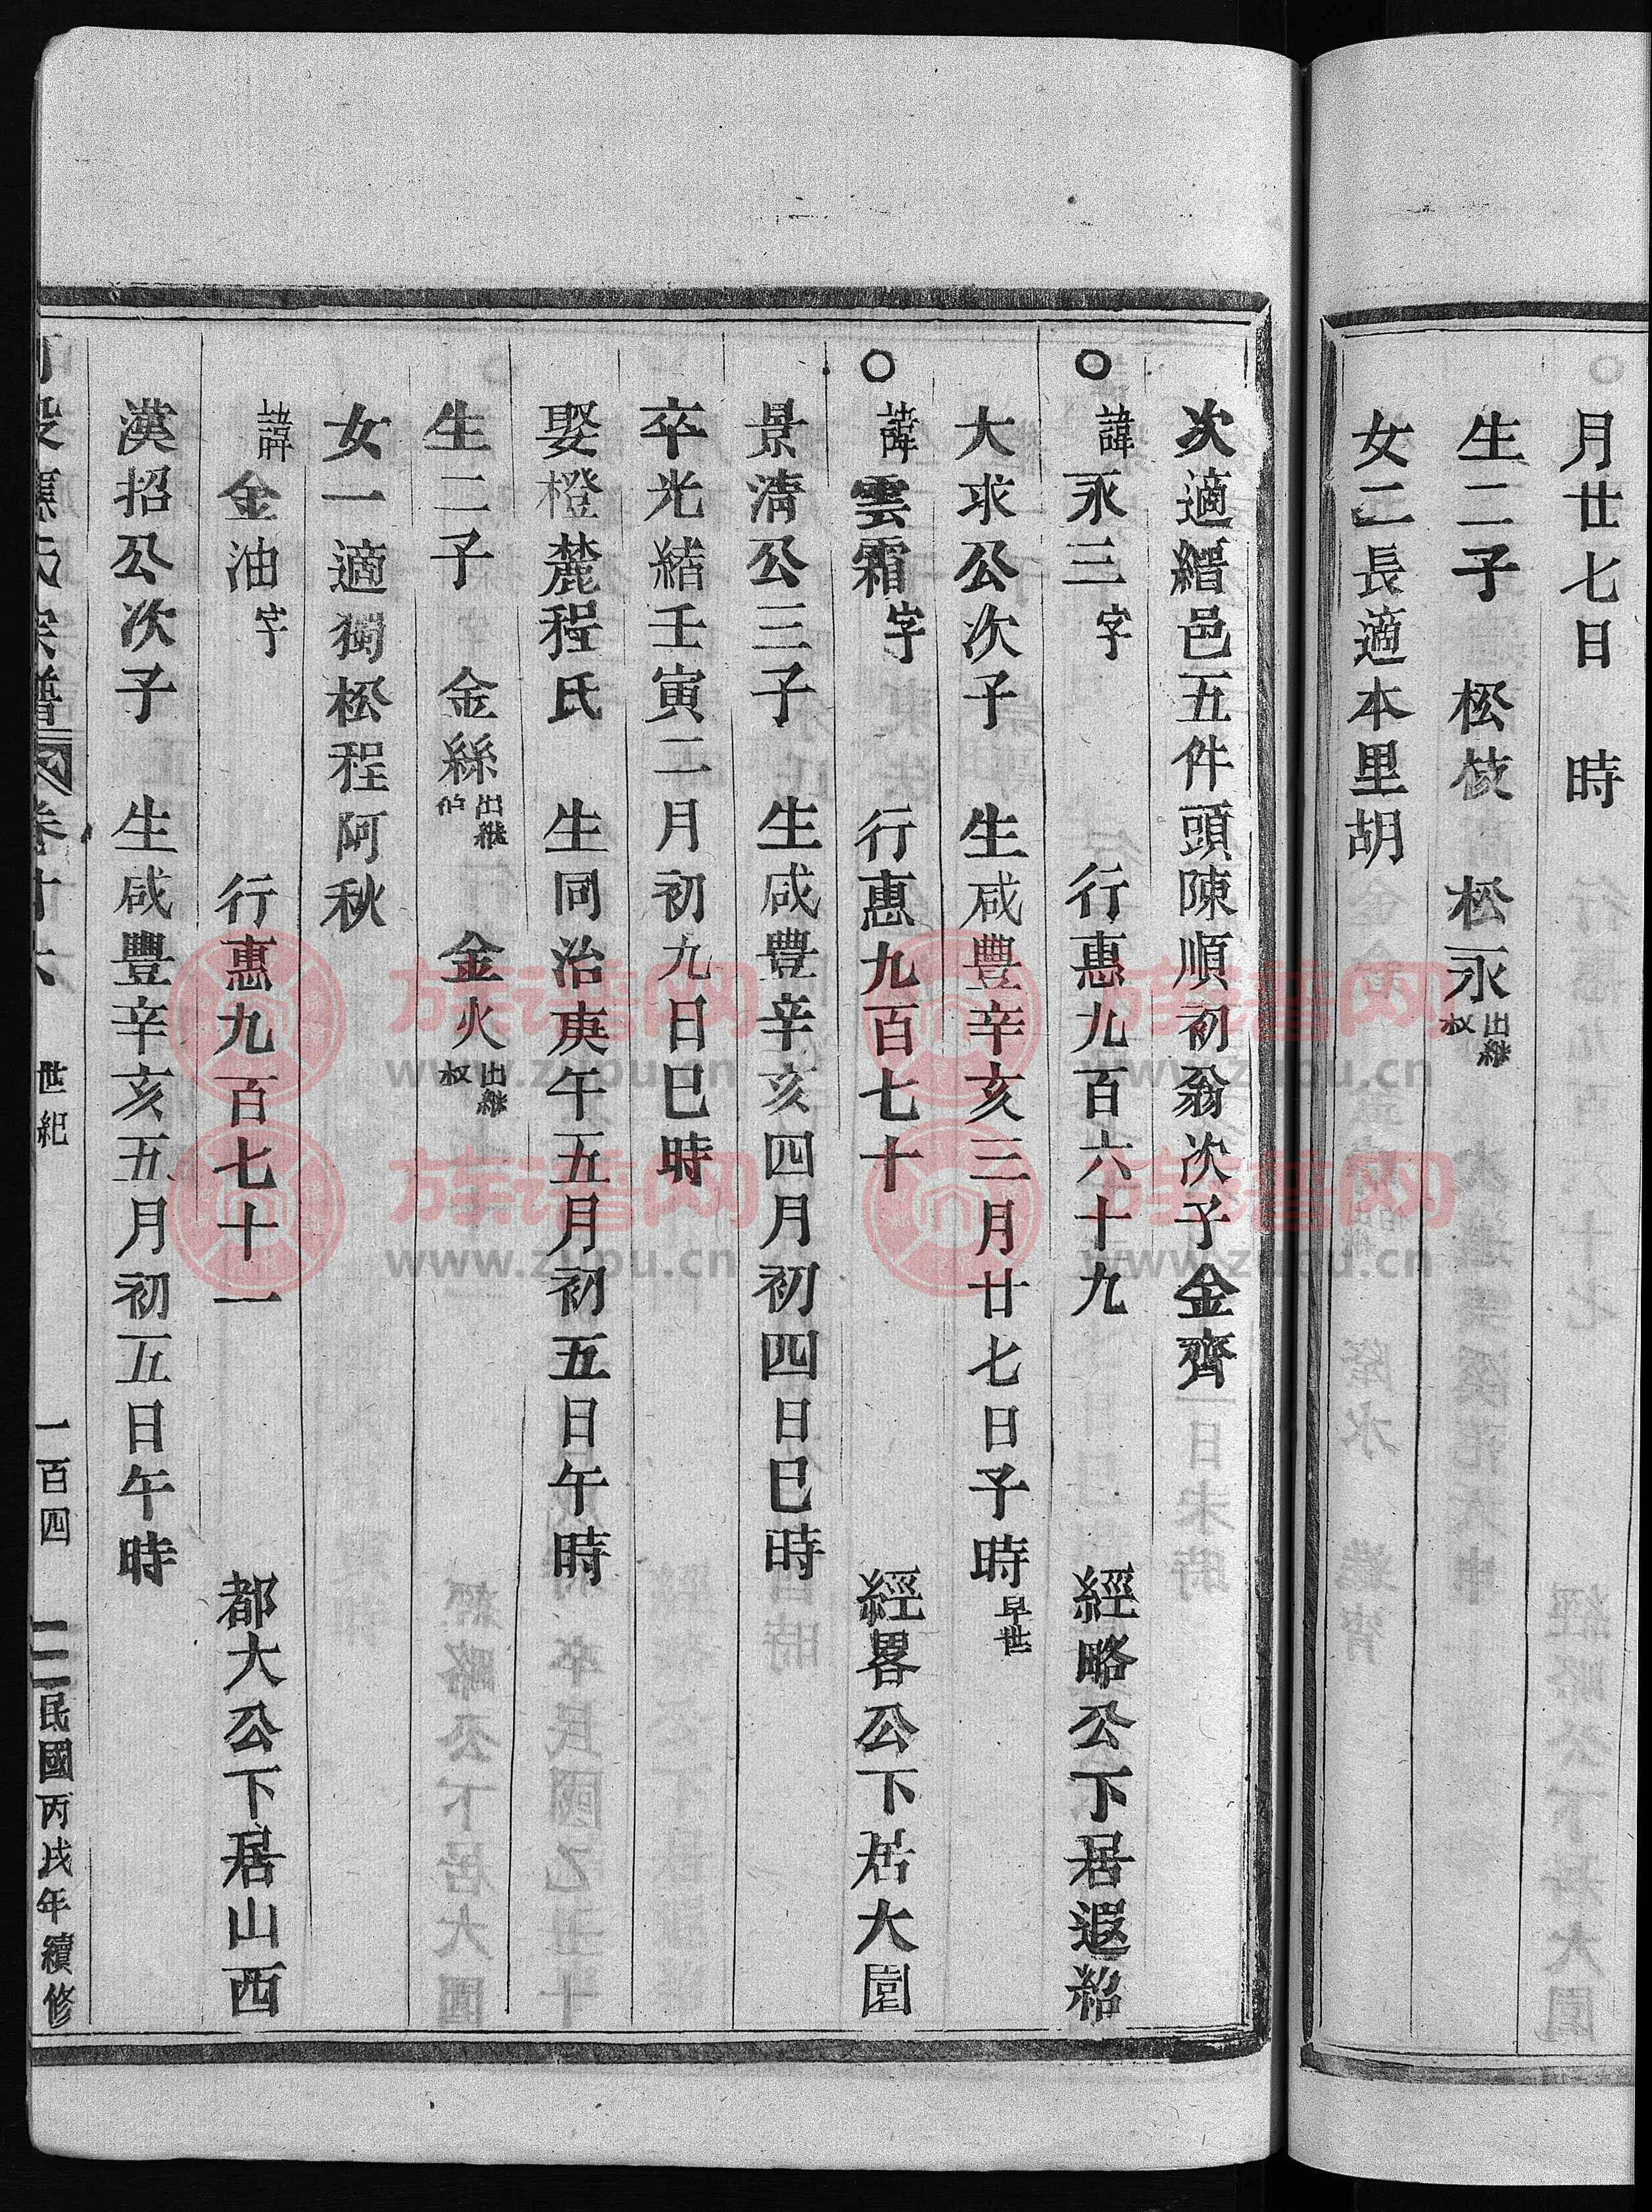 月廿七日　時
生二子　松枝　松永出繼叔
女二長適本里胡
次適縉邑五件頭陳順初翁次子金齊
○諱永三字　行惠九百六十九　經略公下居遐紹
大求公次子　生咸豐辛亥三月廿七日子時早世
○諱雲霜字　行惠九百七十　經畧公下居大園
景清公三子　生咸豐辛亥四月初四日巳時
卒光緒壬寅二月初九日巳時
娶橙麓程氏　生同治庚午五月初五日午時
生二子　金絲出繼伯　金火出繼叔
女一適獨松程阿秋
諱金油字　行惠九百七十一　都大公下居山西
漢招公次子　生咸豐辛亥五月初五日午時
氏宗譜　卷十六　世紀　一百四　民國丙戌年續修
族谱网
www.zupu.cn
族谱网
www.zupu.cn
族谱网
www.zupu.cn
族谱网
www.zupu.cn